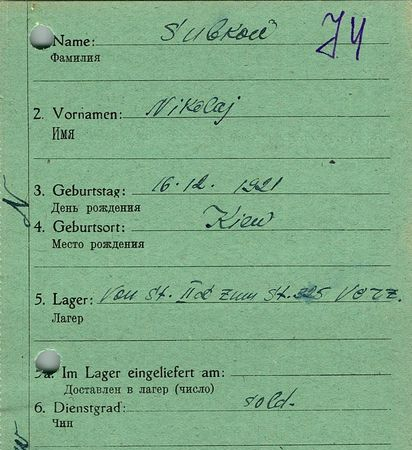 Name: Subkow
Фамилия
2. Vornamen: Nikolaj
Имя
3. Geburtstag: 16.12. 1921
День рождения
4. Geburtsort: Kiew
Место рождения
5. Lager: Von St. II zum St. 325
Лагер
5a. Im Lager eingeliefert am:
Доставлен в лагер (число)
6. Dienstgrad: Sold.
Чин
N